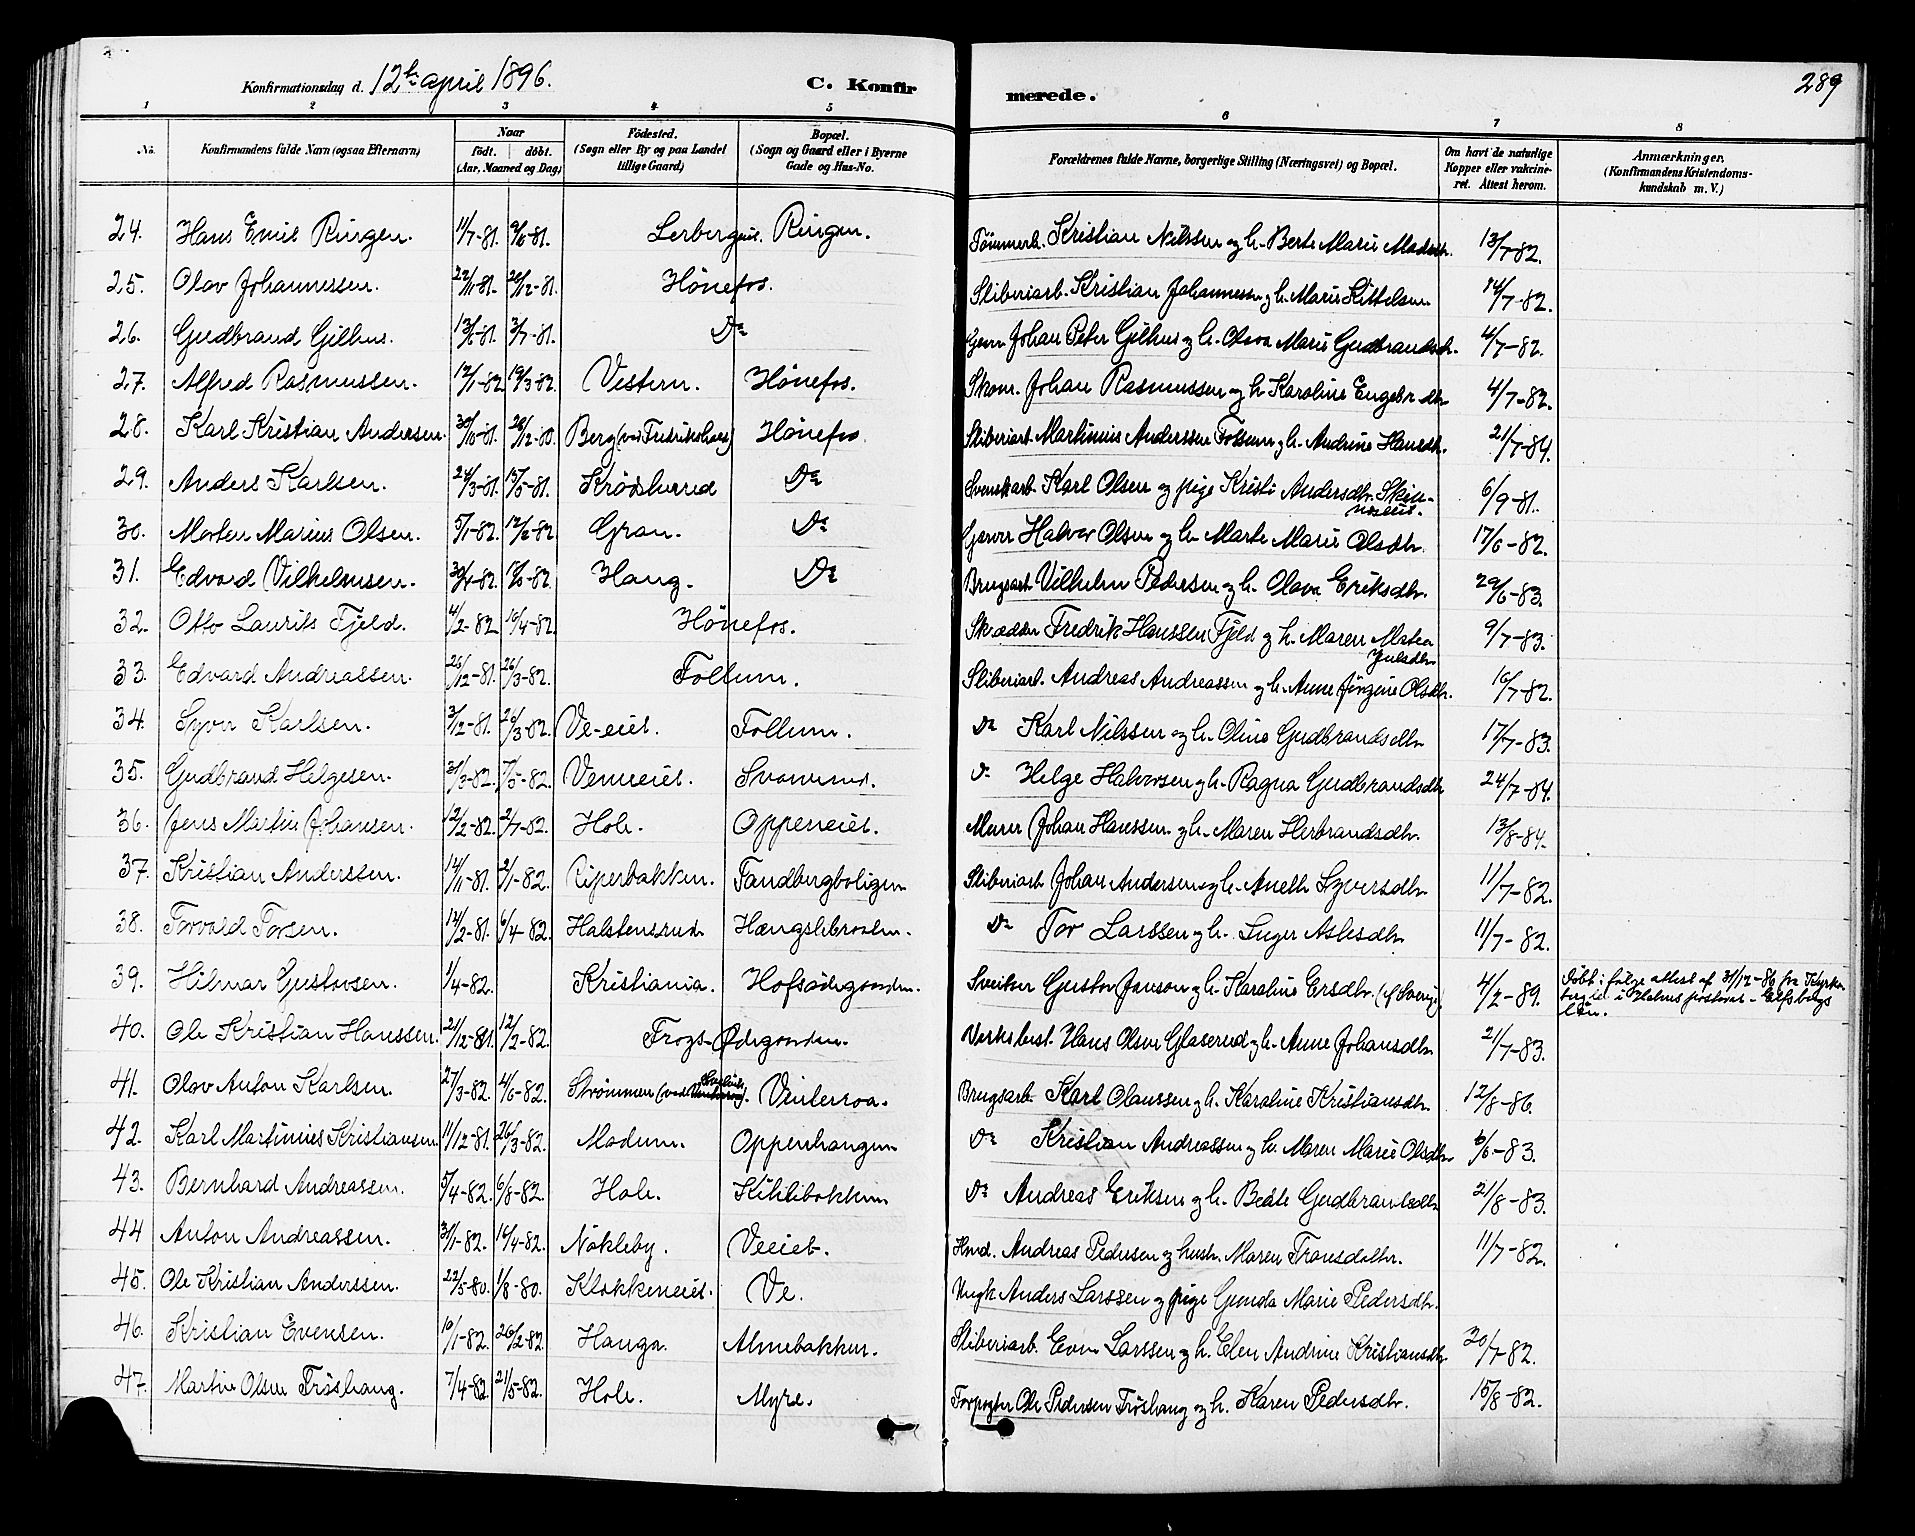 Konfirmationsdag d. 12te april 1896. C. Konfirmerede. 289
1 2 3 4 5 6 7 8
No. Konfirmandens fulde Navn (ogsaa Efternavn) Naar født. døbt. (Aar, Maaned og Dag) Fødested. (Sogn eller By og paa Landet tillige Gaard) Bopæl. (Sogn og Gaard eller i Byerne Gade og Hus-No. Forældrenes fulde Navne, borgerlige Stilling (Næringsvei) og Bopæl. Om havt de naturlige Kopper eller vakcineret. Attest herom. Anmærkninger. (Konfirmandens Kristendomskundskab m. V.)
24. Hans Emil Ringen. 11/7-81. 9/6-81. Lerbergeiet. Ringen. Tømmerh. Kristian Nilssen og h. Berte Marie Madsdtr. 13/7-82.
25. Olav Johannessen. 22/11-81. 26/12-81. Hönefos. Sliberiarb. Kristian Johannessen og h. Marie Kittelsen 14/7-82.
26. Gudbrand Gilhus. 13/6-81. 3/7-81. Do Johan Peter Gilhus og h. Olava Marie Gudbrandsdtr. 4/7-82.
27. Alfred Rasmussen. 12/1-82 19/3-82. Vestern. Hönefos. Skom. Johan Rasmussen og h. Karoline Engebr.dtr 4/7-82.
28. Karl Kristian Anderssen. 30/10-81. 26/12-80. Berg (ved Fredrikshald) Hönefos. Sliberiarb. Martinius Anderssen Follum og h. Andrine Hansdtr. 21/7-84.
29. Anders Karlsen. 24/3-81. 15/5-81. Krödsherred Do Svenskarb. Karl Olsen og pige Kristi Andersdtr. Skin- 6/9-81.
30. Morten Marius Olsen. 5/1-82. 12/2-82 Gran. Do Garver Halvor Olsen og h. Marte Marie Olsdtr. 17/6-82.
31. Edvard Vilhelmsen. 30/4-82. 18/6-82. Haug. Do Brugsarb. Vilhelm Pedersen og h. Olava Eriksdtr. 29/6-83.
32. Otto Laurits Fjeld. 4/2-82 10/4-82 Hönefos. Skrædder Fredrik Hanssen Fjeld og h. Maren Matea Julsdtr 9/7-83.
33. Edvard Andreassen. 26/12-81. 26/3-82. Follum. Sliberiarb. Andreas Andreassen og h. Anne Jörgine Olsdtr. 16/7-82.
34. Syver Karlsen. 3/12-81. 26/3-82. Ve-eiet. Follum. Do Karl Nilssen og h. Oline Gudbrandsdtr 17/7-83.
35. Gudbrand Helgesen. 31/3-82. 7/5-82. Vemeiet. Svarverud. Do Helge Halvorsen og h. Ragna Gudbrandsdtr 24/7-84.
36. Jens Martin Johansen. 12/2-82. 2/7-82. Hole. Oppeneiet. Murer Johan Hanssen og h. Maren Herbrandsdtr. 13/8-84.
37. Kristian Anderssen. 14/11-81. 2/1-82. Riperbakken. Tandbergboligen Sliberiarb Johan Andersen og h. Anette Syversdtr 11/7-82.
38. Torvald Torsen. 14/2-81. 6/4-82. Halstensrud. Hængslebraaten. Do Tor Larssen og h. Inger Aslesdtr 11/7-82.
39. Hilmar Gustavsen. 1/4-82. Kristiania. Hofsødegaarden. Sveiser Gustav Janson og h. Karoline Ersdtr. (f. Sverige) 4/2-89. Døbt i følge attest af 31/12-86 fra Kyrke- i Elfsborgs län.
40. Ole Kristian Hanssen. 21/12-81. 12/2-82. Frogs-Ödegaarden. Verksbest. Hans Olsen Glaserud og h. Anne Johansdtr 21/7-83.
41. Olav Anton Karlsen. 27/3-82. 4/6-82. Strömmen. Vinteroa. Brugsarb. Karl Olaussen og h. Karoline Kristiansdtr 12/8-86.
42. Karl Martinius Kristiansen. 11/12-81. 26/3-82. Modum. Oppenhaugen Do Kristian Andreassen og h. Maren Marie Olsdtr 6/6-83.
43. Bernhard Andreassen. 5/4-82. 6/8-82. Hole. Kihlebakken Do Andreas Eriksen og h. Beate Gudbrandsdtr 21/8-83.
44 Anton Andreassen. 31/1-82. 16/4-82. Nökleby. Veeiet. Hmd. Andreas Pedersen og hustr. Maren Transdatter. 11/7-82.
45. Ole Kristian Anderssen. 22/5-80. 1/8-80. Klokkereiet. Ve. Ungk Anders Larssen og pige Gunda Marie Pedersdtr.
46. Kristian Evensen. 10/1-82. 26/2-82. Hauga. Almebakken. Sliberiarb. Even Larssen og h. Elen Andrine Kristiansdtr 20/7-82.
47. Martin Olsen Fröshaug. 7/4-82. 21/5-82. Hole. Myra. Forpagter Ole Pedersen Fröshaug og h. Karen Pedersdtr. 15/8-82.